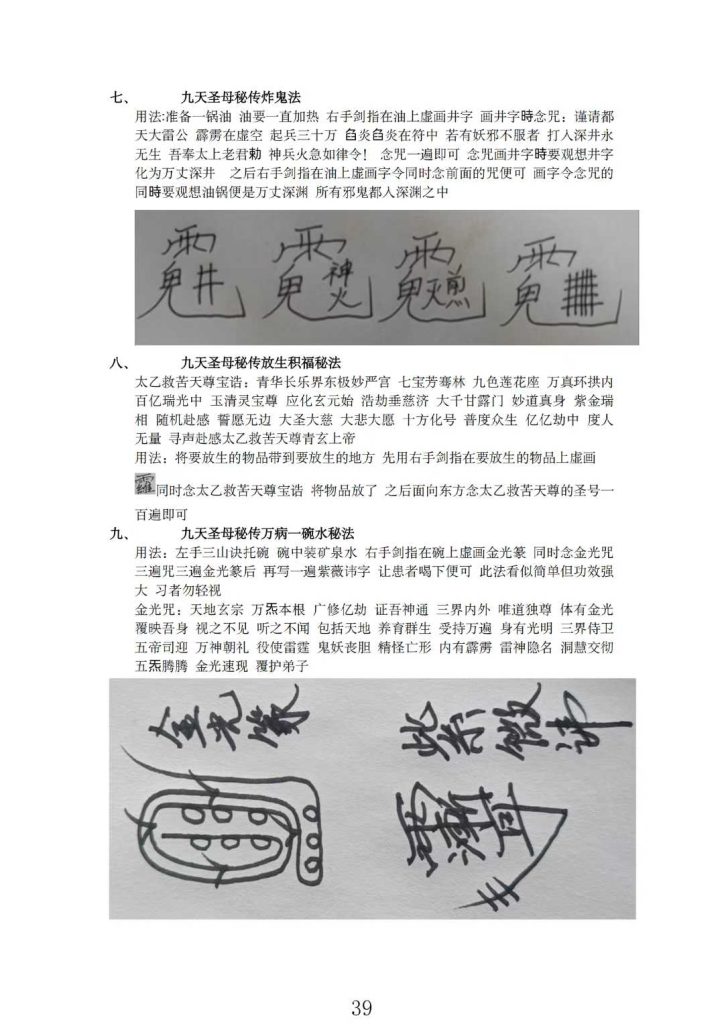 七、 九天圣母秘传炸鬼法
用法:准备一锅油 油要一直加热 右手剑指在油上虚画井字 画井字時念咒：谨请都
天大雷公 霹雳在虚空 起兵三十万 炎 炎在符中 若有妖邪不服者 打人深井永
无生 吾奉太上老君勅 神兵火急如律令！ 念咒一遍即可 念咒画井字時要观想井字
化为万丈深井 之后右手剑指在油上虚画字令同时念前面的咒便可 画字令念咒的
同時要观想油锅便是万丈深渊 所有邪鬼都人深渊之中
井 神火
八、 九天圣母秘传放生积福秘法
太乙救苦天尊宝诰：青华长乐界东极妙严宫 七宝芳骞林 九色莲花座 万真环拱内
百亿瑞光中 玉清灵宝尊 应化玄元始 浩劫垂慈济 大千甘露门 妙道真身 紫金瑞
相 随机赴感 誓愿无边 大圣大慈 大悲大愿 十方化号 普度众生 亿亿劫中 度人
无量 寻声赴感太乙救苦天尊青玄上帝
用法：将要放生的物品带到要放生的地方 先用右手剑指在要放生的物品上虚画
同时念太乙救苦天尊宝诰 将物品放了 之后面向东方念太乙救苦天尊的圣号一
百遍即可
九、 九天圣母秘传万病一碗水秘法
用法：左手三山诀托碗 碗中装矿泉水 右手剑指在碗上虚画金光篆 同时念金光咒
三遍咒三遍金光篆后 再写一遍紫薇讳字 让患者喝下便可 此法看似简单但功效强
大 习者勿轻视
金光咒：天地玄宗 万炁本根 广修亿劫 证吾神通 三界内外 唯道独尊 体有金光
覆映吾身 视之不见 听之不闻 包括天地 养育群生 受持万遍 身有光明 三界侍卫
五帝司迎 万神朝礼 役使雷霆 鬼妖丧胆 精怪亡形 内有霹雳 雷神隐名 洞慧交彻
五炁腾腾 金光速现 覆护弟子
金光篆
紫微讳
39